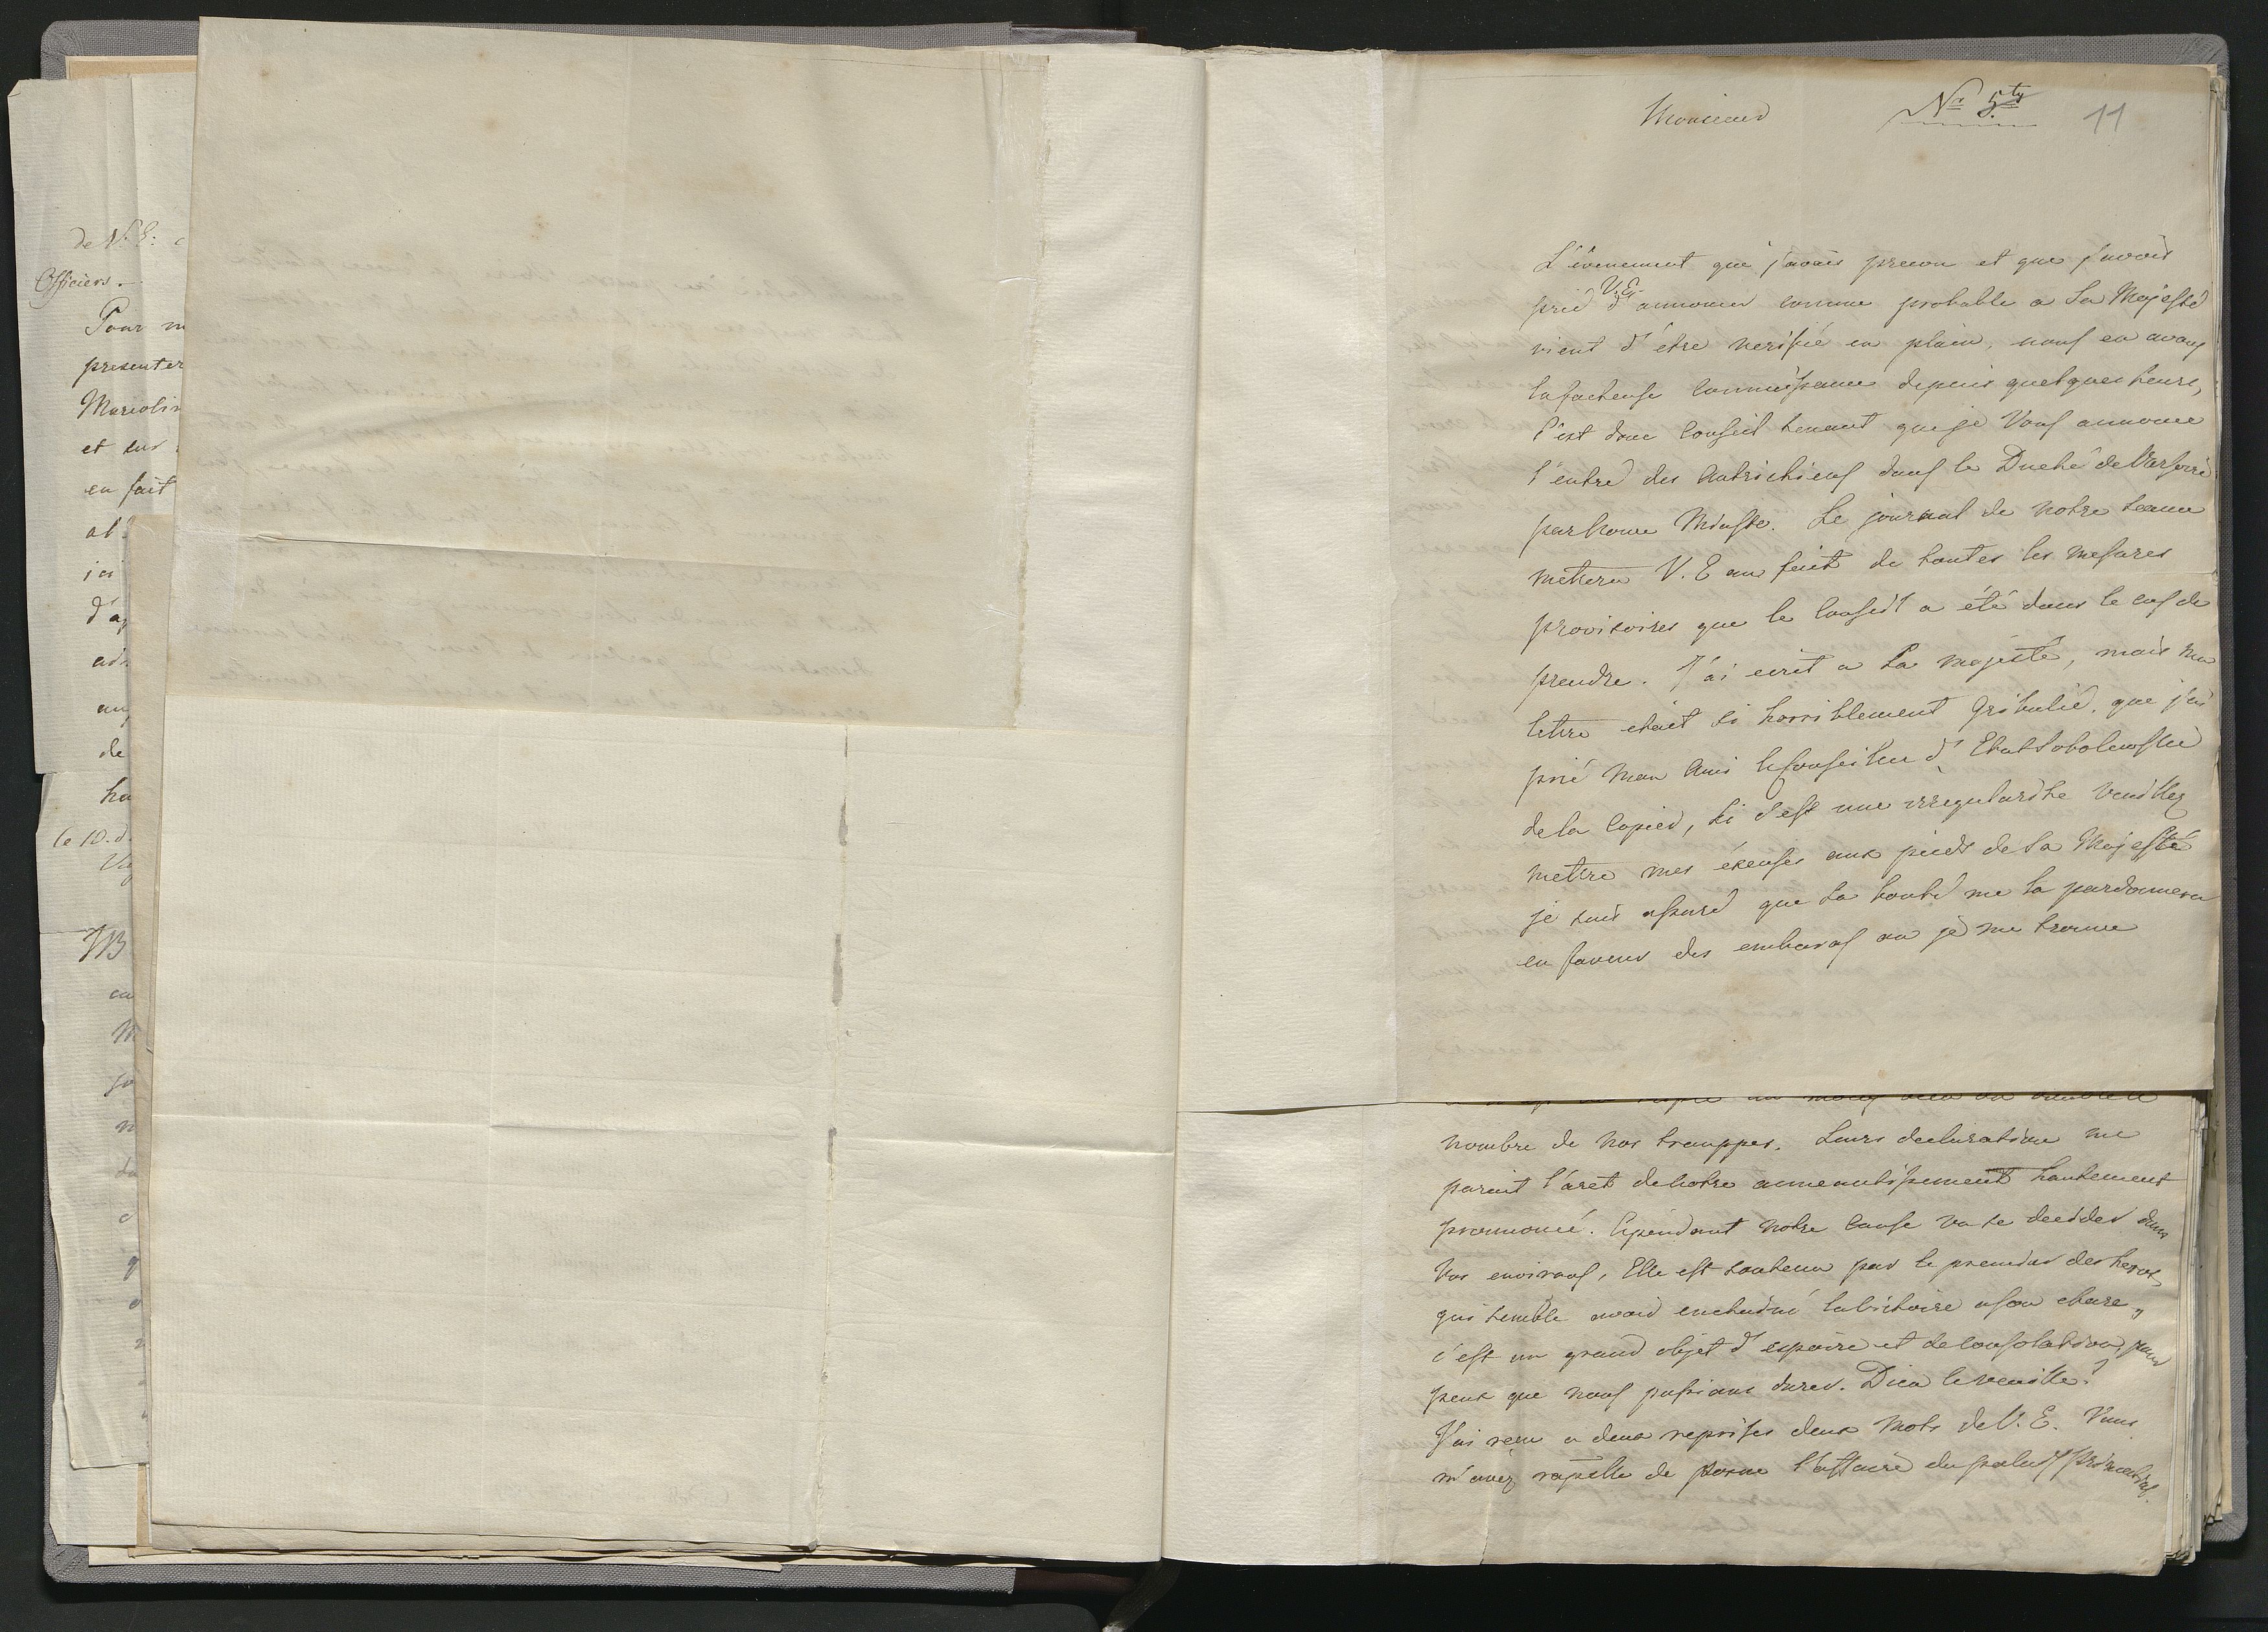 de V. E.
Officiers.
Pour
presenter
et sur
en fait
ici
de
le 10.
Monsieur
Nr. 5ty
11
L'évenement que j'avais prevu et que j'avois
prié V.E. d'annoncer comme probable a Sa Majesté
vient d'étre verifié en plain, nous en avons
la facheuse connoissance depuis quelques heures,
C'est donc Conseil tenant que je Vous annonce
l'entré des Autrichiens dans le Duché de Varsovie
par Nowe Miasto. Le journal de notre tenue
mettera V. E au fait de toutes les mesures
provisoires que le Conseil a été dans le cas de
prendre. J'ai ecrit a Sa majesté, mais ma
lettre etait si horriblement gribulié, que j'ai
prié mon Ami le Conseiller d'Etat Sobolewski
de la Copier, si c'est une irregularité veuillez
mettre mes éxcuses aux pieds de Sa Majesté
je suis assuré que sa bonté me la pardonnera
en faveur des embaras ou je me trouve
nombre de nos trouppes. Leurs declaration me
parait l'aret de notre anneantissement hautement
prononcé. Cependant notre cause va se decider dans
Vos environs, Elle est soutenu par le premier des heros,
qui semble avoir enchainé la victoire a son chare,
c'est un grand objet d'espoire et de consolation, pour
peux que nous puissions durer. Dieu le veuille!
J'ai reçu a deux reprises deux Mots de V. E. Vous
m'avez rapellé de l'affaire du palais Primatial.